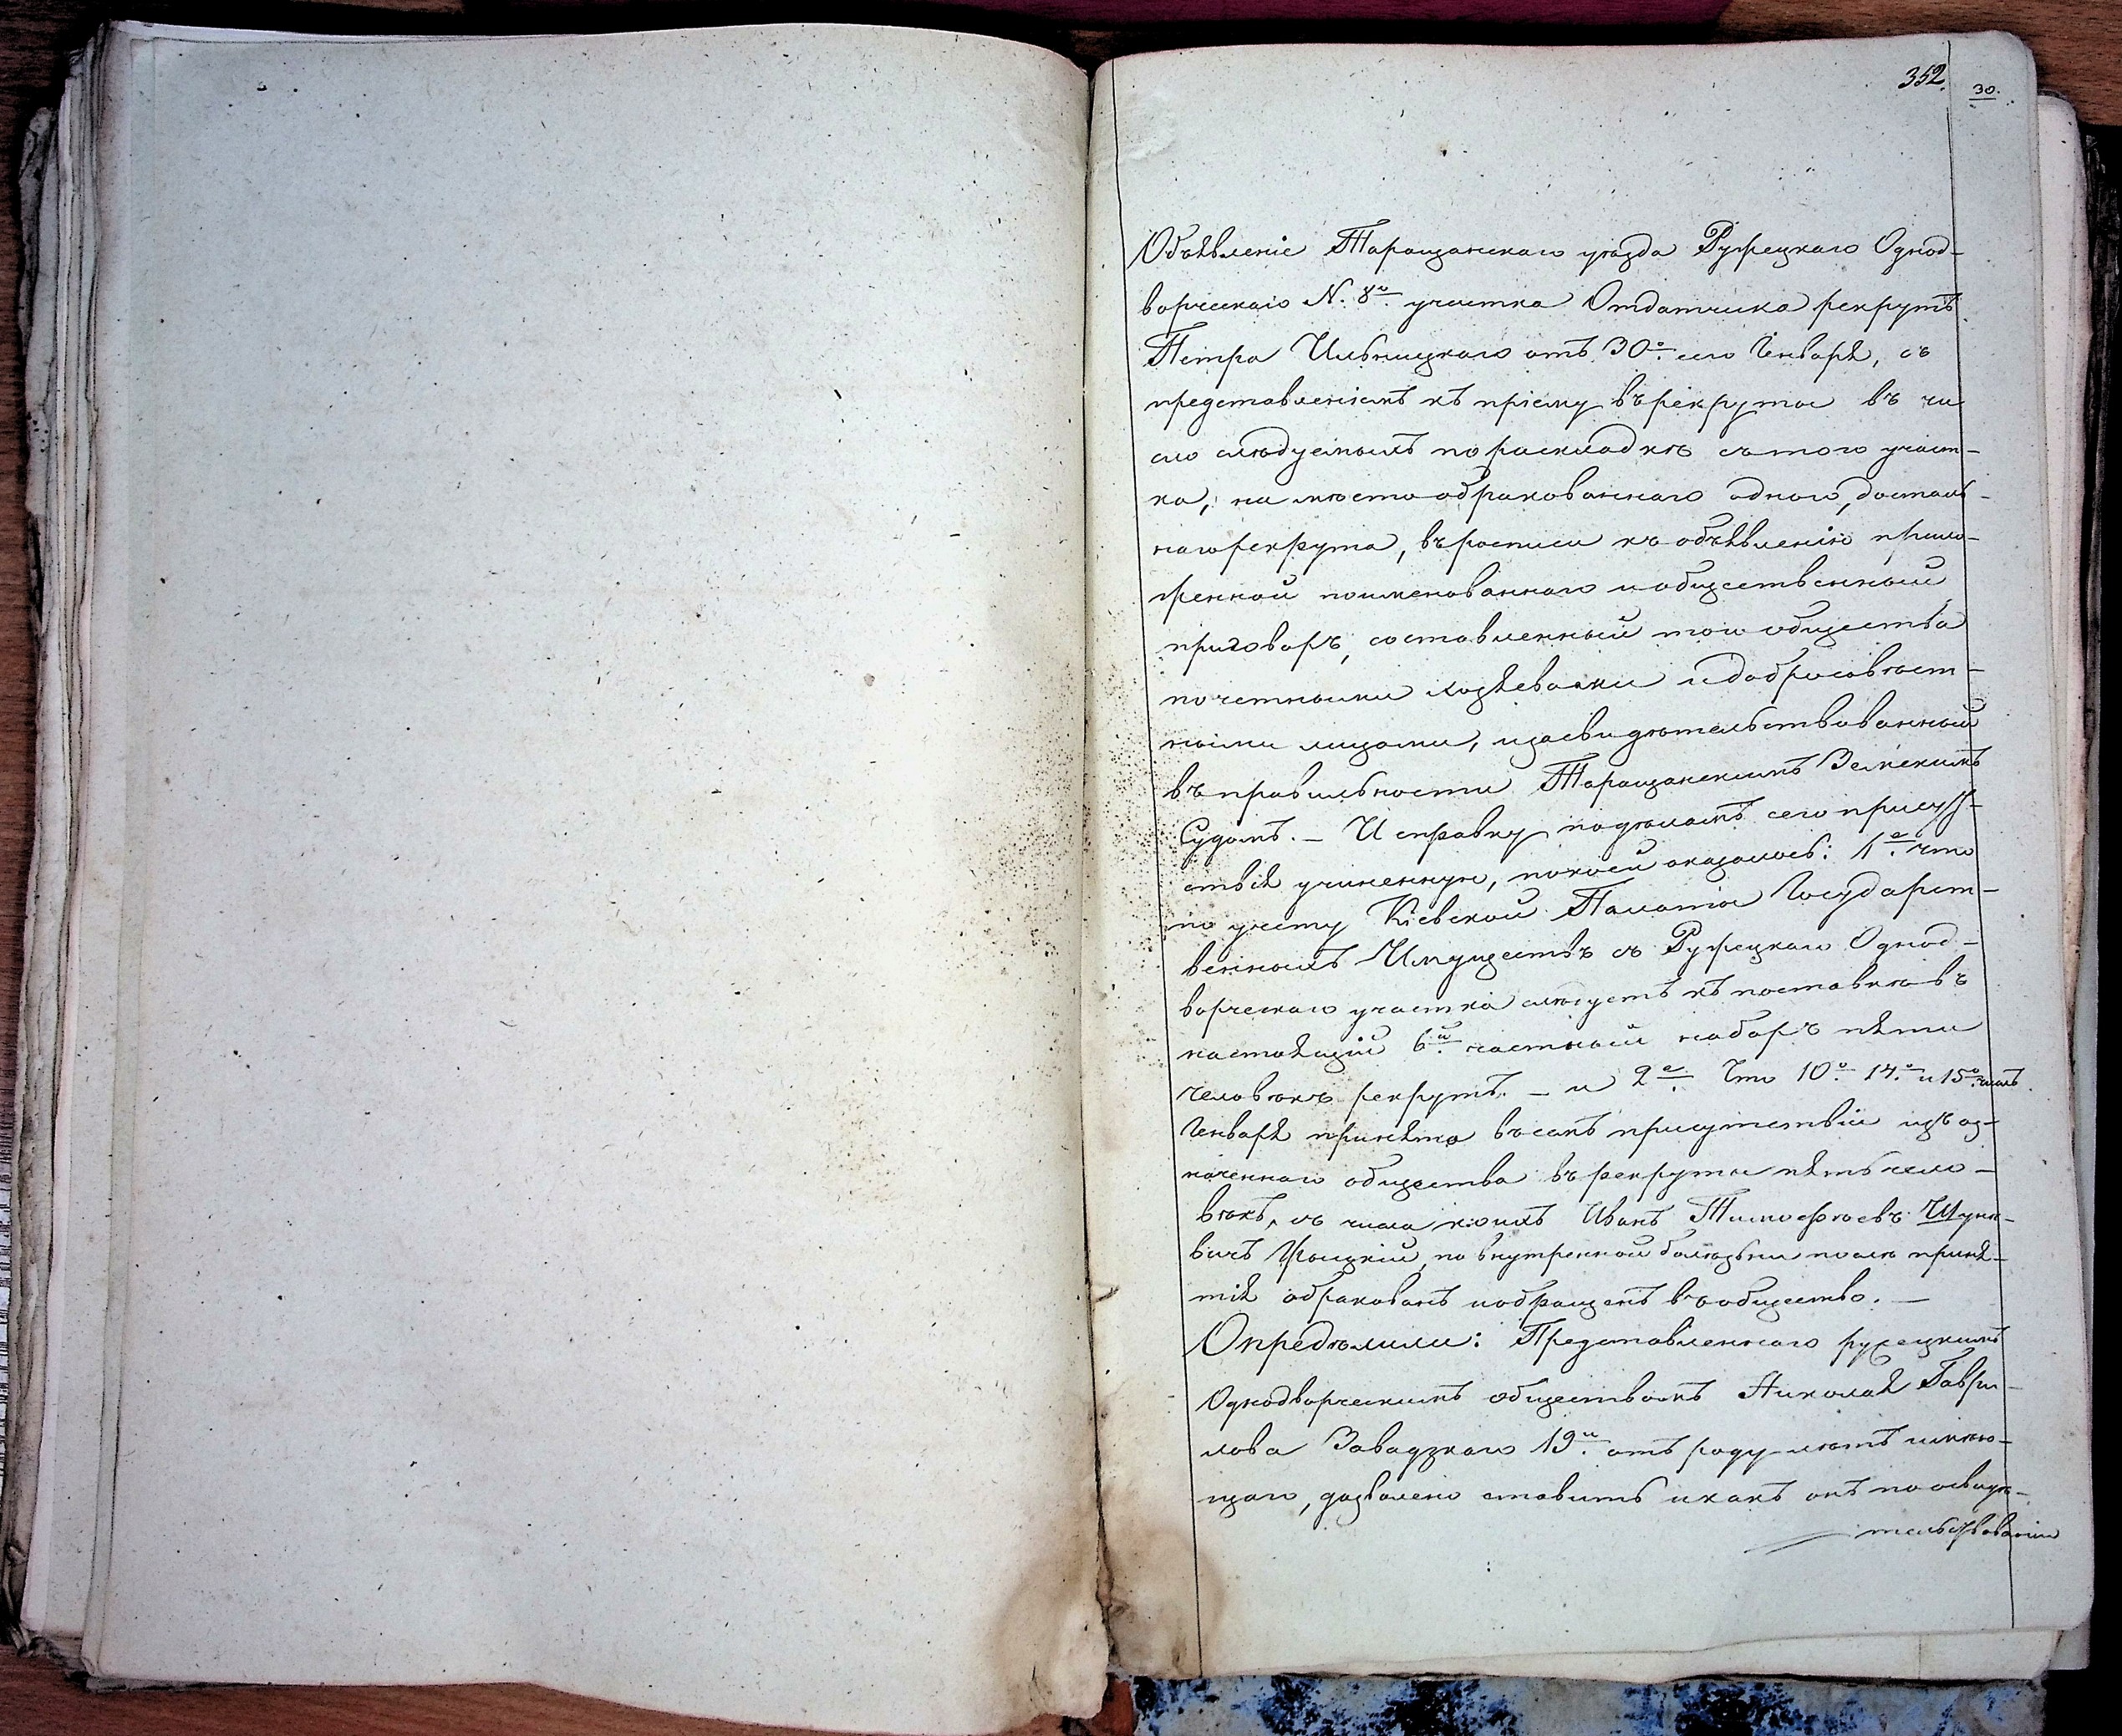 352.
30.
Объявленіе Таращанскаго уѣзда Ружецкаго Однод-
ворческаго N. 8го. участка Отдатчика рекрутъ
Петра Ильницкаго отъ 30го. сего Генваря, съ
представленіемъ къ пріему въ рекруты въ чи
сло слѣдуемыхъ по раскладкѣ съ того участ-
ка, на мѣсто обракованнаго одного, досталь-
наго рекрута, въ росписи къ объявленію прило-
женной поименованнаго и общественный
приговоръ, составленный того общества
почетными хозяевами и добросовѣст-
ными лицами, и засвидѣтельствованный
въ правильности Таращанскимъ Земскимъ
Судомъ. — И справку по дѣламъ сего присут-
ствія учиненную, по коей оказалось: 1е. что
по учету Кіевской Палаты Государст-
венныхъ Имуществъ съ Ружецкаго Однод-
ворческаго участка слѣдуетъ къ поставкѣ въ
настоящій 6й. частный наборъ пяти
человѣкъ рекрутъ. — и 2е. Что 10го. 14го. и 15го. числъ
Генваря принято въ семъ присутствіи изъ оз-
наченнаго общества въ рекруты пять чело-
вѣкъ, съ числа коихъ Иванъ Тимофѣевъ
вичъ по внутренной болѣзни послѣ приня-
тія обракованъ и обращенъ въ общество. —
Опредѣлили: Представленнаго ружецкимъ
Однодворческимъ обществомъ Николая Гаври-
лова Завадзкаго 19и. отъ роду лѣтъ имѣю-
щаго, дозволено ставить и какъ онъ по освидѣ-
тельствованіи